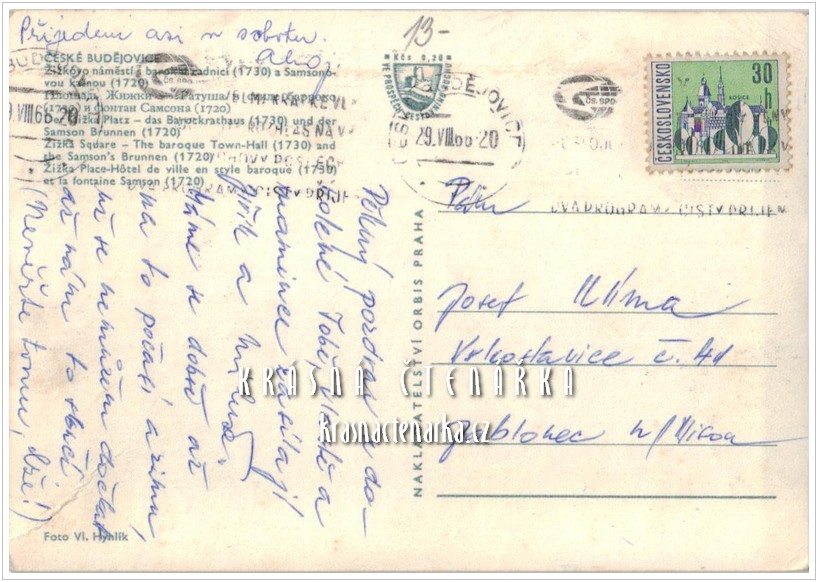 Přijedem asi v sobotu.
Ahoj!
13-
ČESKÉ BUDĚJOVICE
Žižkovo náměstí s barokní radnicí (1730) a Samsono-
vou kašnou (1720)
Площадь Жижки — Ратуша в стиле барокко
(1730) и фонтан Самсона (1720)
Žižka Platz – das Barockrathaus (1730) und der
Samson Brunnen (1720)
Žižka Square – The baroque Town-Hall (1730) and
the Samson's Brunnen (1720)
Žižka Place-Hôtel de ville en style baroque (1730)
et la fontaine Samson (1720)
Kčs 0,20
29.VIII.66-20
ČESKOSLOVENSKO
KOŠICE
30
h
Pěkný pozdrav z do-
volené Tobě Vlastě a
mamince zasílají
Jiřík a
Máme se dobře až
na to počasí a zimu,
už se nemůžem dočkat
až nám to skončí
(Nevěřte tomu, lže!)
NAKLADATELSTVÍ ORBIS PRAHA
Pan
Josef Klíma
Vrkoslavice č. 41
Jablonec n/Nisou
KRÁSNÁ ČTENÁŘKA
krasnactenarka.cz
Foto Vl. Hyhlík